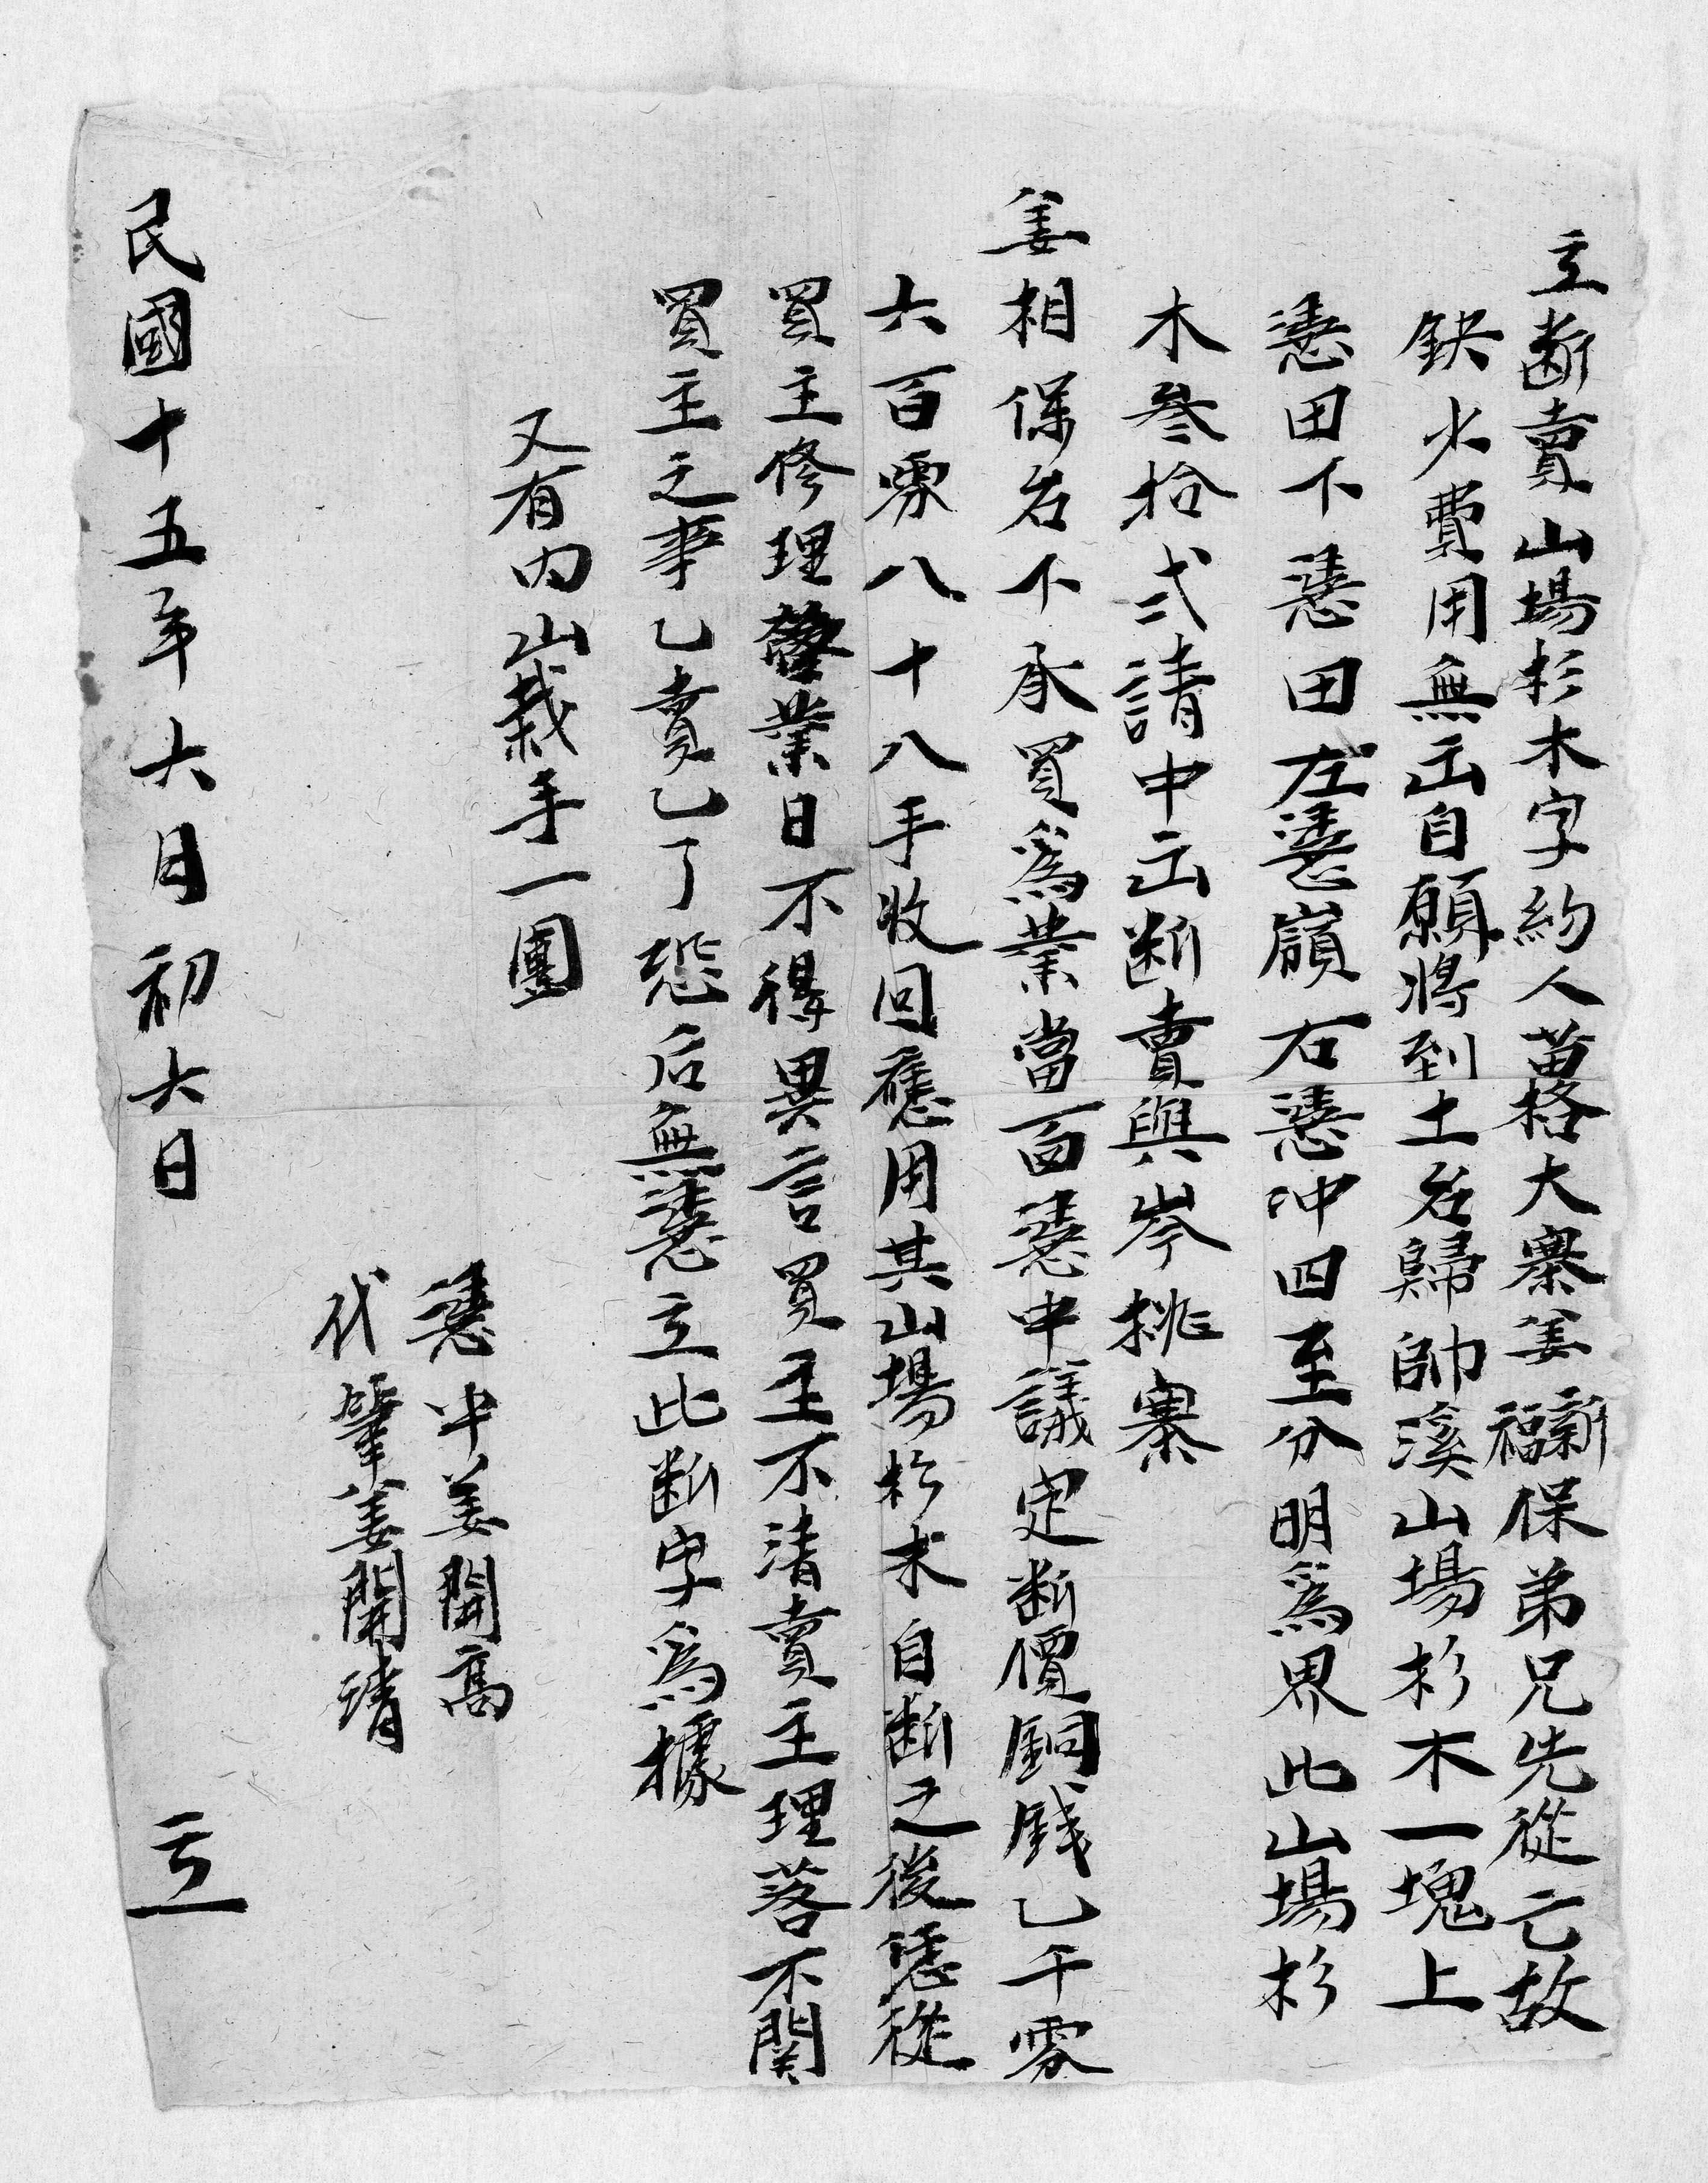 立斷賣山場杉木字約人苗格大寨姜新福保弟兄先從亡故
鈌少費用無出自願將到土名歸帥溪山場杉木一塊上
凴田下凴田左凴嶺右凴冲四至分明爲界此山場杉
木叁拾弍請中出断賣與岑挑寨
姜相保名下承買爲業當面凴中議定断價銅錢乙千零
六百零八十八手收回應用其山場杉木自断之後凴從
買主修理管業日不得異言買主不清賣主理落不関
買主之事乙賣乙了恐后無凴立此断字爲據
又有内山栽手一團
凴中姜開高
代筆姜開清
民國十五年六月初六日 立